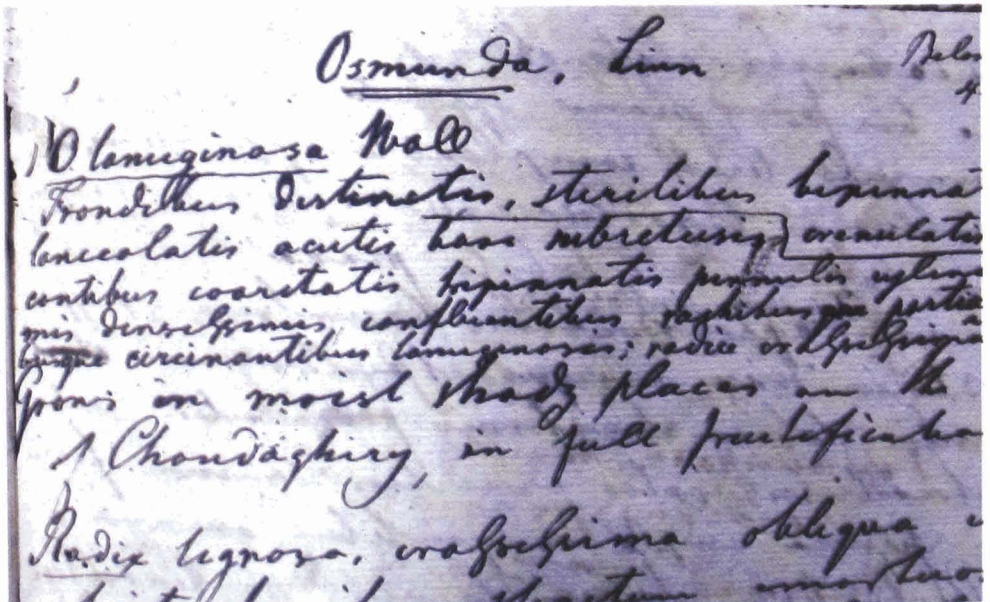 Osmunda, Linn
O lanuginosa Wall
Frondibus distinctis, sterilibus bipinna
lanceolatis acutis basi subretusis crenulatis
contibus coarctatis bipinnatis pinnulis cylin
mis densissimis, confluentibus rachibus partia
busque circinantibus lanuginosis; radice crassissima
Grows in moist shady places on the
Chandaghiry, in full fructification
Radix lignosa, crassissima obliqua